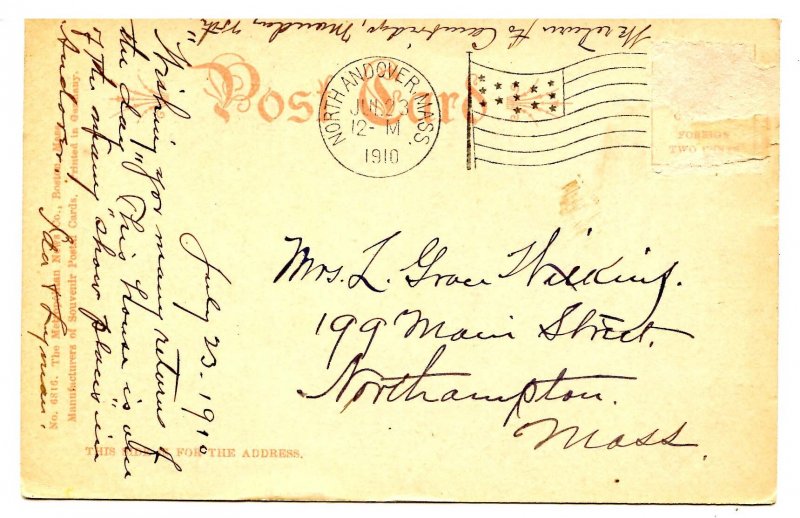 We return to Cambridge, Monday 25th
Post Card
NORTH ANDOVER, MASS.
JUL 23
12- M
1910
FOREIGN
TWO CENTS
July 23. 1910
"Wishing you many returns of
the day". This house is one
of the many "show places" in
Andover.
& Lyman.
Mrs. L. Grace Wilking.
199 Main Street.
Northampton.
Mass.
No. 6816. The Metropolitan News Co., Boston, Mass.
Manufacturers of Souvenir Postal Cards. Printed in Germany.
THIS SIDE IS FOR THE ADDRESS.